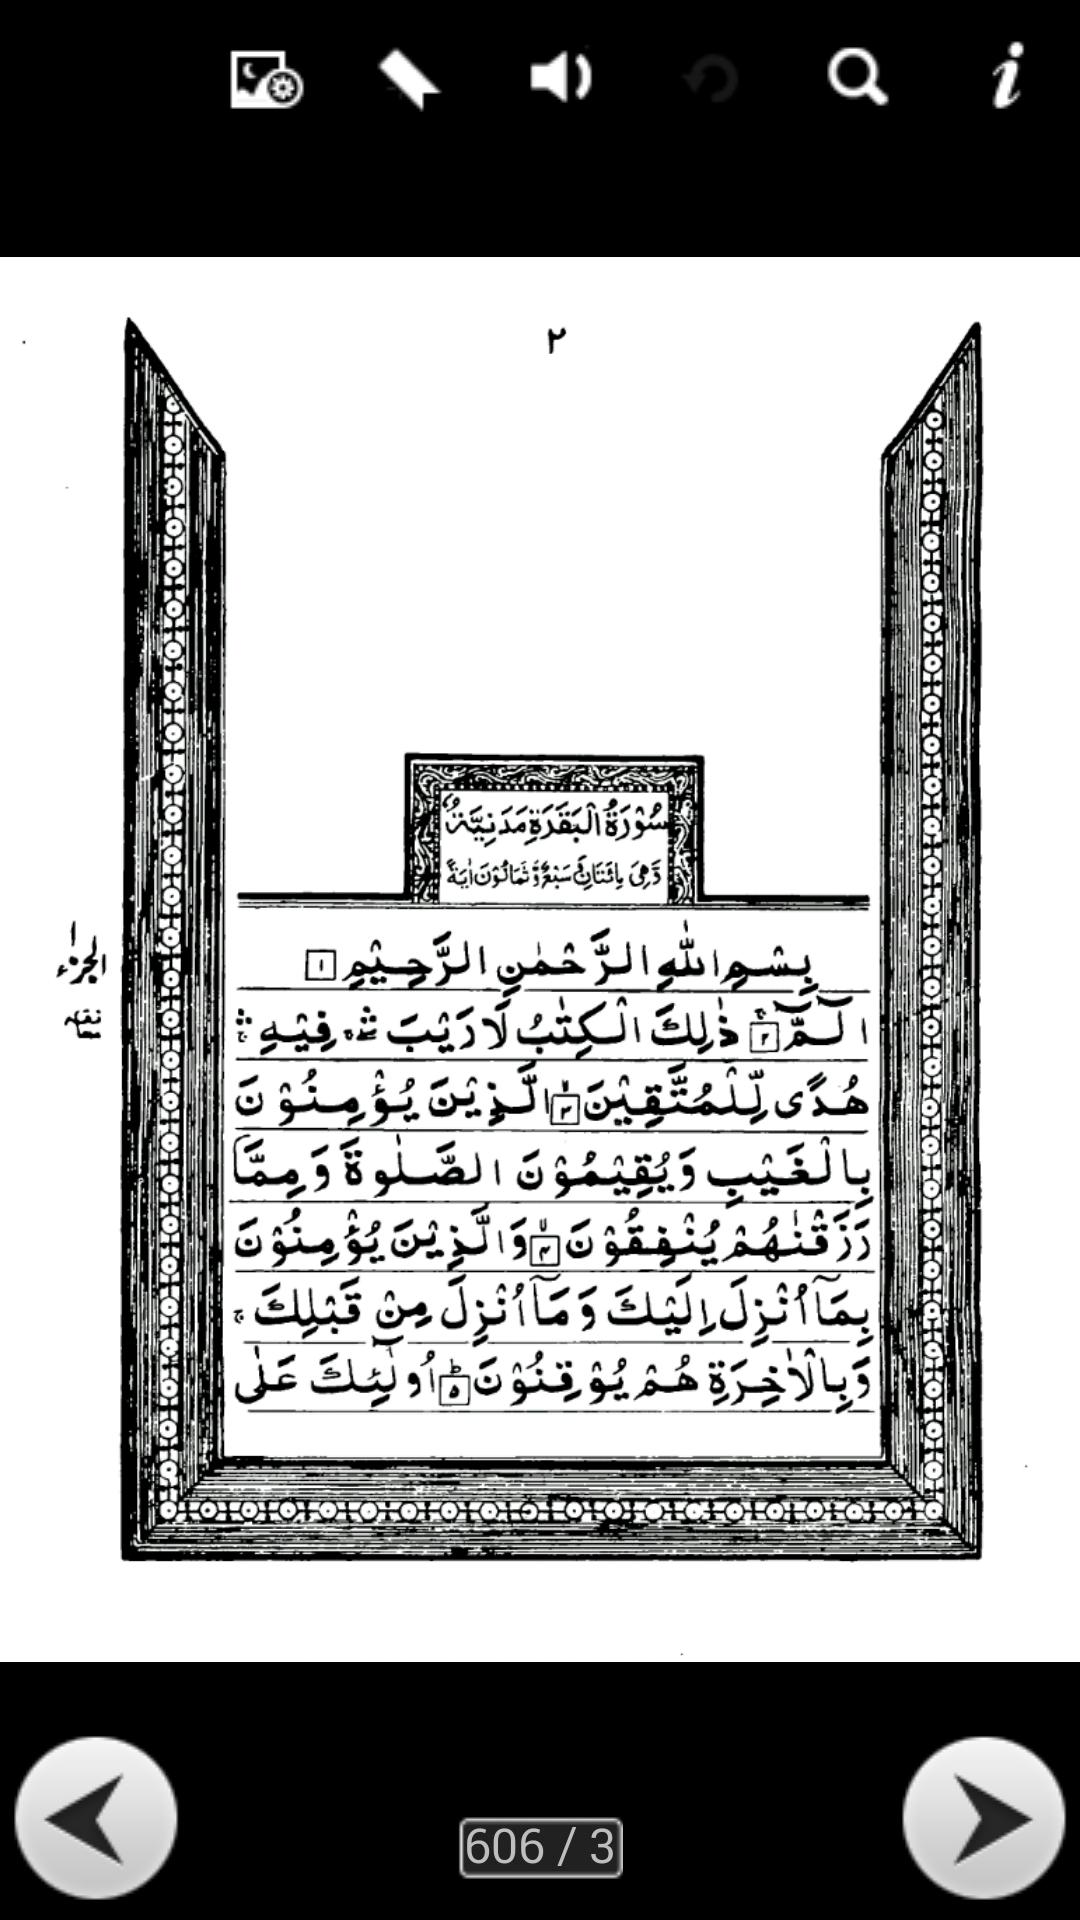 ٢
سُوْرَةُ الْبَقَرَةِ مَدَنِيَّةٌ
وَّهِىَ مِائَتَانِ وَ سَبْعٌ وَّ ثَمَانُوْنَ اٰيَةً
الجزء ١
بِسْمِ اللّٰهِ الرَّحْمٰنِ الرَّحِيْمِ ١
الٓـمّٓ ٢ ذٰلِكَ الْكِتٰبُ لَا رَيْبَ ۛ فِيْهِ ۛ
هُدًى لِّلْمُتَّقِيْنَ ٣ الَّذِيْنَ يُؤْمِنُوْنَ
بِالْغَيْبِ وَيُقِيْمُوْنَ الصَّلٰوةَ وَمِمَّا
رَزَقْنٰهُمْ يُنْفِقُوْنَ ٤ وَالَّذِيْنَ يُؤْمِنُوْنَ
بِمَآ اُنْزِلَ اِلَيْكَ وَمَآ اُنْزِلَ مِنْ قَبْلِكَ ۚ
وَبِالْاٰخِرَةِ هُمْ يُوْقِنُوْنَ ٥ اُولٰٓئِكَ عَلٰى
606 / 3